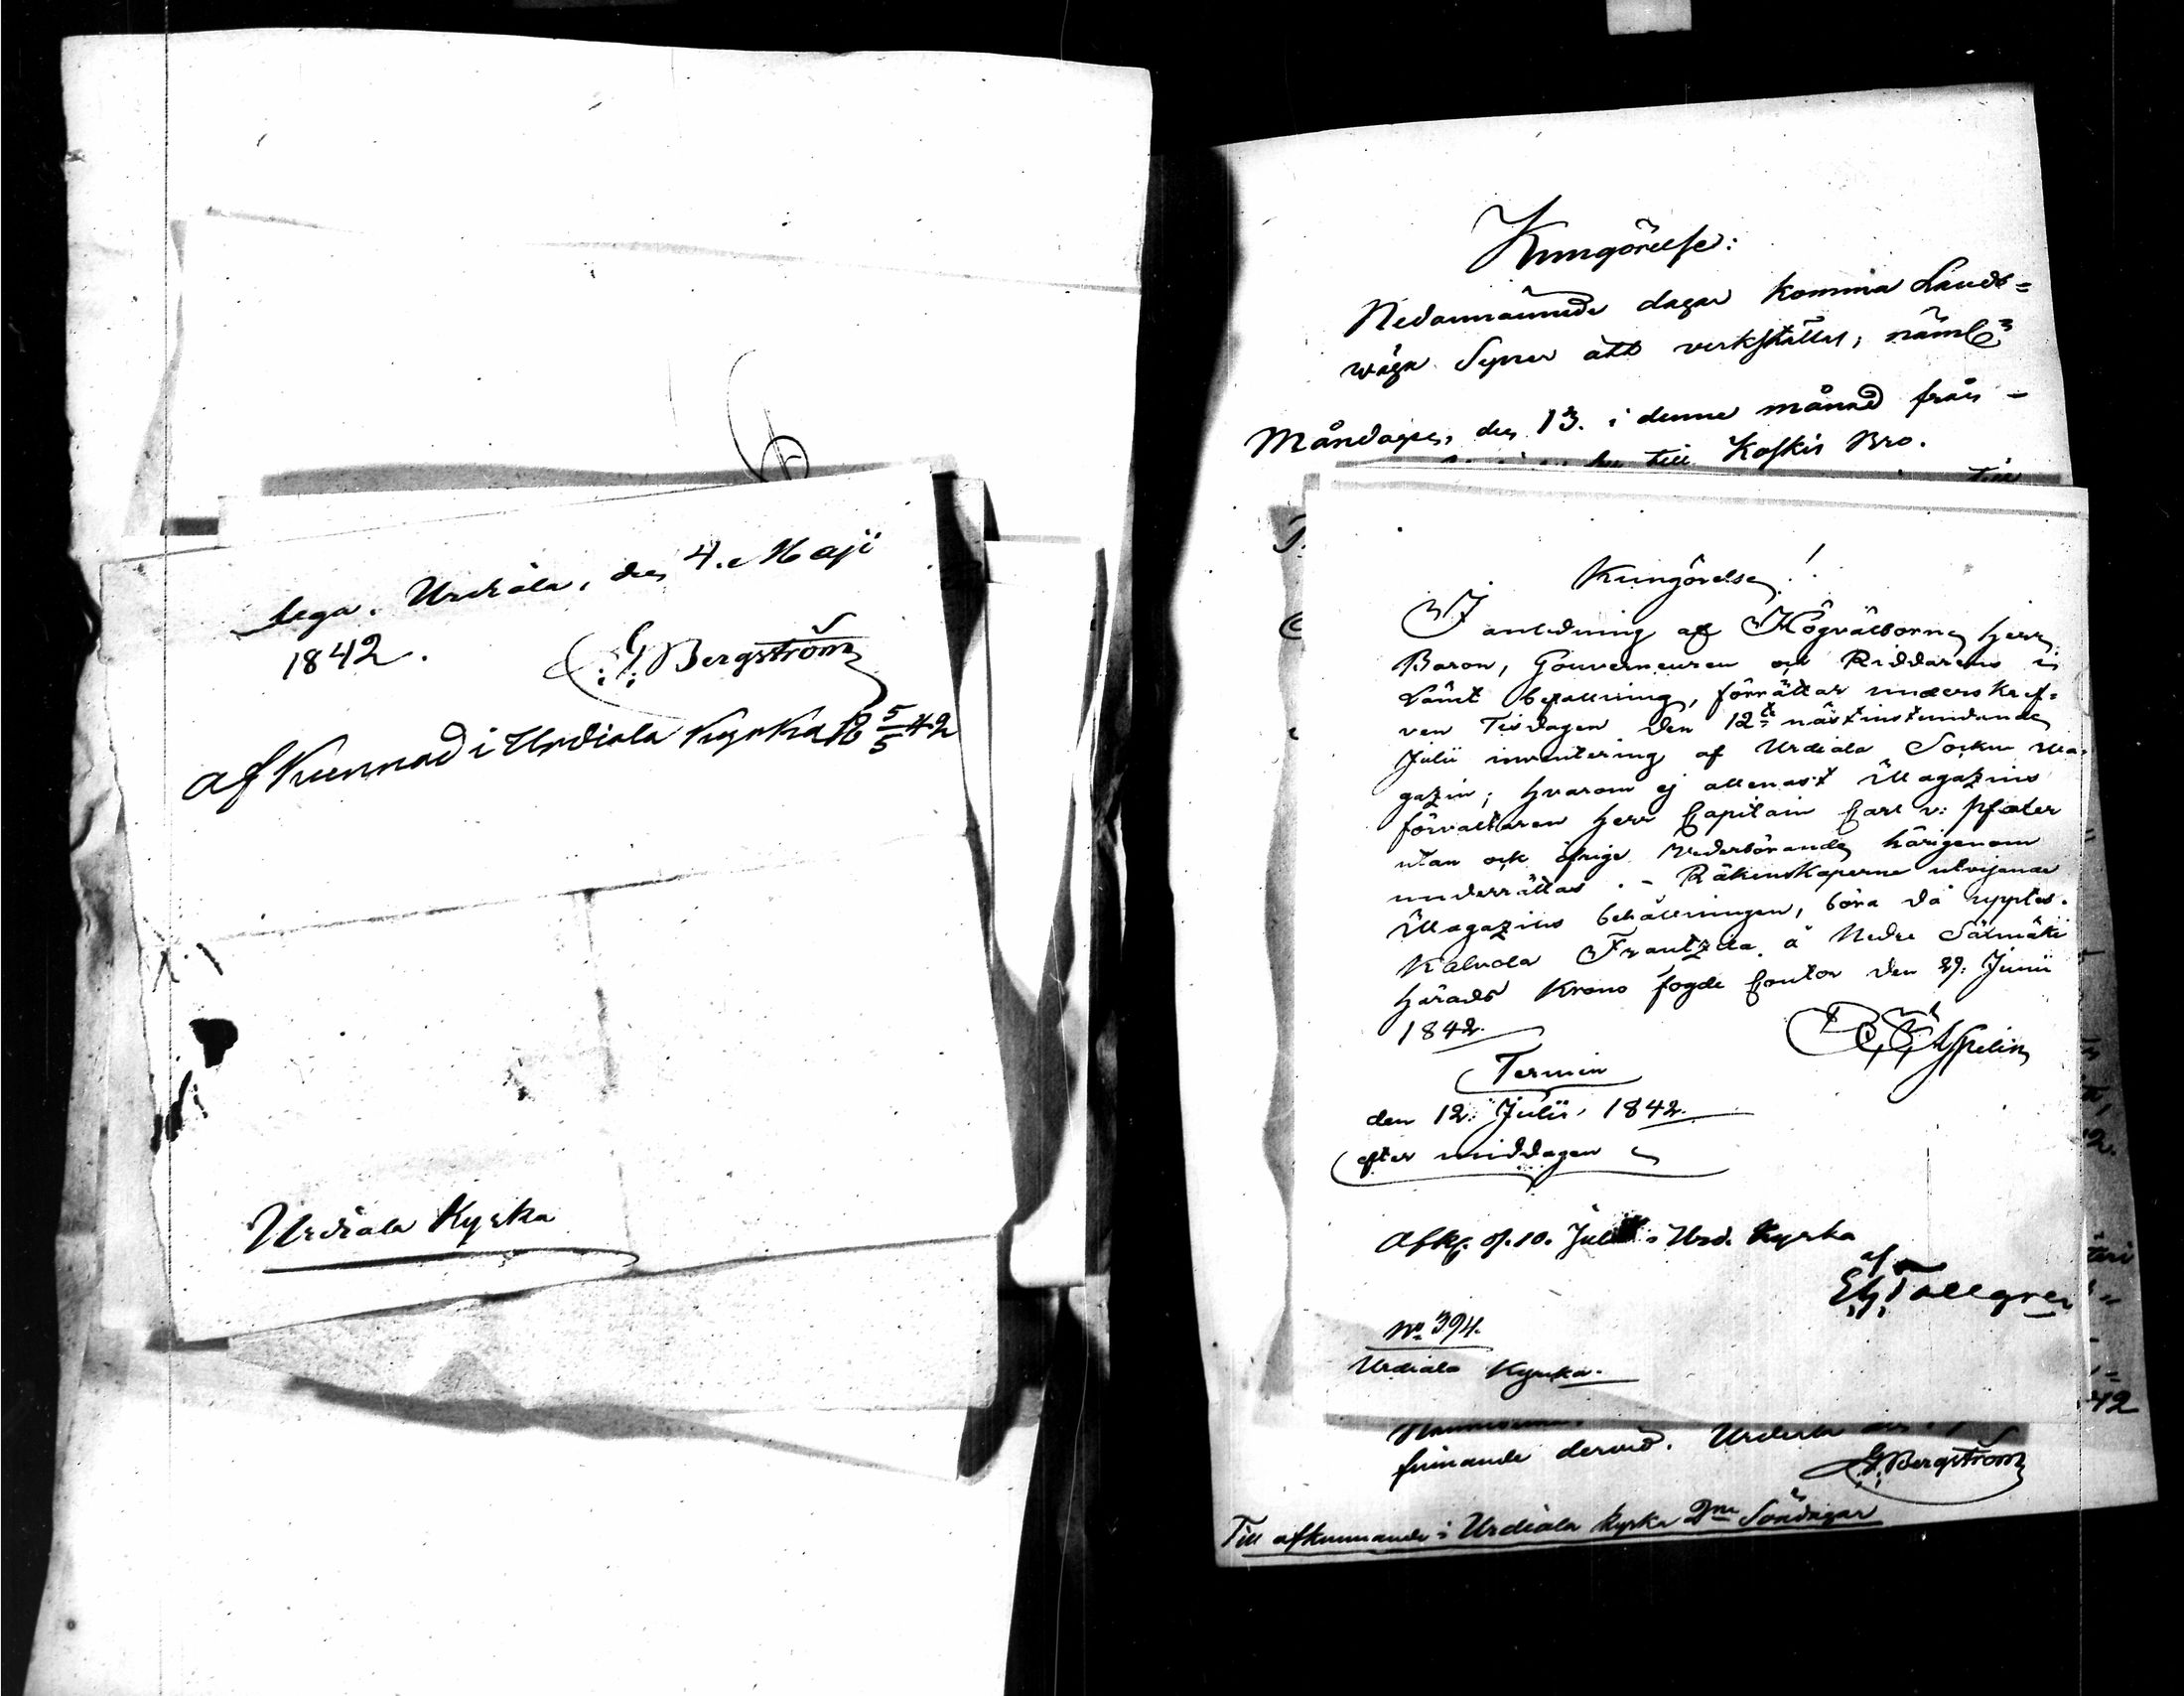 lega. Urdiala, den 4. Maji
1842.
G. Bergström
afkunnad i Urdiala Kyrka 5/5 42
Urdiala Kyrka
Kungörelse:
Nedannämnde dagar komma Lands=
wäga Syner att verkställas, näml
Måndagen, den 13. i denne månad från -
till Koskis Bro.
till
Kungörelse!
I anledning af Högvälborne Herr
Baron, Gouverneuren och Riddarens i
Länt befallning, förrättar underskref=
ven Tisdagen den 12te nästinstundande
Julii inventering af Urdiala Sockne Ma-
gazin; hvarom ej allenast Magazins
förvaltaren Herr Capitain Carl v: Pfaler
utan ock öfrige vederbörande härigenom
underrättas. - Räkenskaperne utvisande
Magazins behållningen, böra då upptes.
Kalvola Frantzila å Nedre Säxmäki
Härads Krono fogde Contor den 29. Junii
1842.
Termin
den 12. Julii, 1842.
efter middagen
Afk. d. 10. Juli i Urd. Kyrka
af
Tallgren
No 394.
Urdiala Kyrka.
finnande dervid. Urdiala den
G. Bergström
Till afkunnande i Urdiala kyrka 2ne Söndagar
42